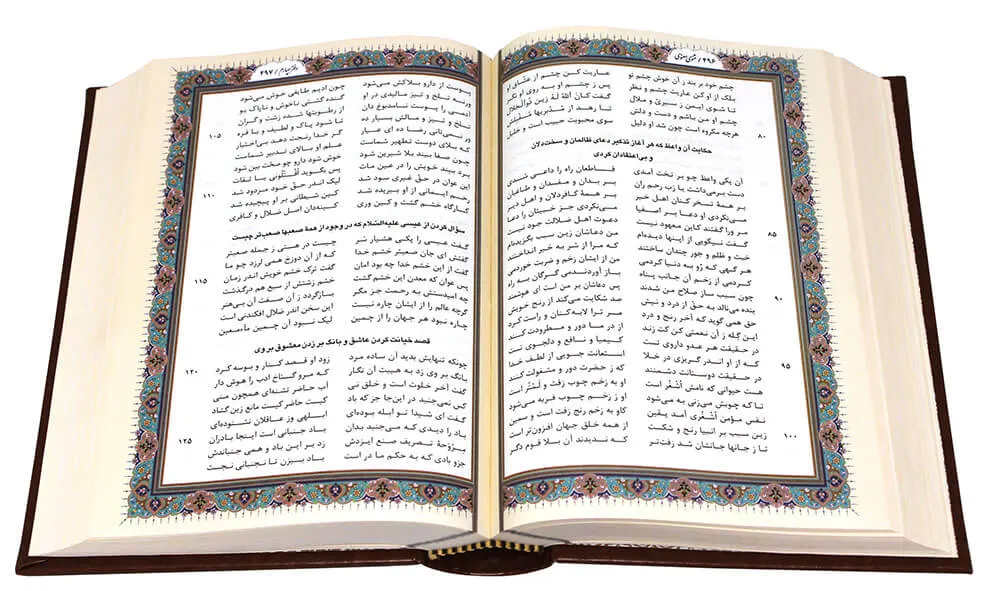 ۴۹۶ / مثنوی معنوی
چشم خود بر بند ز آن خوش چشم تو عاریت کن چشم از عشاق او
بلک از او کن عاریت چشم و نظر پس ز چشم او به روی او نگر
تا شوی ایمن ز سیری و ملال گفت کان الله له زین ذوالجلال
۸۰ چشم او من باشم و دست و دلش تا رهد از مدبریها مقبلش
هرچه مکروه است چون شد او دلیل سوی محبوبت حبیب است و خلیل
حکایت آن واعظ که هر آغاز تذکیر دعای ظالمان و سخت‌دلان
و بی‌اعتقادان کردی
آن یکی واعظ چو بر تخت آمدی قاطعان راه را داعی شدی
دست برمی‌داشت یا رب رحم ران بر بدان و مفسدان و طاغیان
بر همهٔ تسخر کنان اهل خیر بر همهٔ کافردلان و اهل دیر
۸۵ می‌نکردی او دعا بر اصفیا می‌نکردی جز خبیثان را دعا
مر ورا گفتند کاین معهود نیست دعوت اهل ضلالت جود نیست
گفت نیکویی از اینها دیده‌ام من دعاشان زین سبب بگزیده‌ام
خبث و ظلم و جور چندان ساختند که مرا از شر به خیر انداختند
هر گهی که رو به دنیا کردمی من از ایشان زخم و ضربت خوردمی
۹۰ کردمی از زخم آن جانب پناه باز آوردندمی گرگان به راه
چون سبب ساز صلاح من شدند پس دعاشان بر من است ای هوشمند
بنده می‌نالد به حق از درد و نیش صد شکایت می‌کند از رنج خویش
حق همی گوید که آخر رنج و درد مر ترا لابه‌کنان و راست کرد
این گله ز آن نعمتی کن کت زند از در ما دور و مطرودت کند
۹۵ در حقیقت هر عدو داروی تست کیمیا و نافع و دلجوی تست
که از او اندر گریزی در خلا استعانت جویی از لطف خدا
در حقیقت دوستانت دشمنند که ز حضرت دور و مشغولت کنند
هست حیوانی که نامش اشغر است او به زخم چوب زفت و لمتر است
تا که چوبش می‌زنی به می‌شود او ز زخم چوب فربه می‌شود
نفس مؤمن اشغری آمد یقین کاو به زخم رنج زفت است و سمین
۱۰۰ زین سبب بر انبیا رنج و شکست از همه خلق جهان افزون‌تر است
تا ز جانها جانشان شد زفت‌تر که ندیدند آن بلا قوم دگر
دفتر چهارم / ۴۹۷
پوست از دارو بلاکش می‌شود چون ادیم طایفی خوش می‌شود
ورنه تلخ و تیز مالیدی در او گنده گشتی ناخوش و ناپاک بو
آدمی را پوست نامدبوغ دان از رطوبتها شده زشت و گران
۱۰۵ تلخ و تیز و مالش بسیار ده تا شود پاک و لطیف و با فره
ور نمی‌تانی رضا ده ای عیار گر خدا رنجت دهد بی‌اختیار
که بلای دوست تطهیر شماست علم او بالای تدبیر شماست
چون صفا بیند بلا شیرین شود خوش شود دارو چو صحت بین شود
برد بیند خویش را در عین مات پس بگوید اقتلونی یا ثقات
۱۱۰ این عوان در حق غیری سود شد لیک اندر حق خود مردود شد
رحم ایمانی از او ببریده شد کین شیطانی بر او پیچیده شد
کارگاه خشم گشت و کین وری کینه‌دان اصل ضلال و کافری
سؤال کردن از عیسی علیه‌السلام که در وجود از همهٔ صعبها صعب‌تر چیست
گفت عیسی را یکی هشیار سر چیست در هستی ز جمله صعبتر
گفتش ای جان صعبتر خشم خدا که از آن دوزخ همی لرزد چو ما
۱۱۵ گفت از این خشم خدا چه بود امان گفت ترک خشم خویش اندر زمان
پس عوان که معدن این خشم گشت خشم زشتش از سبع هم درگذشت
چه امیدستش به رحمت جز مگر بازگردد ز آن صفت آن بی‌هنر
گرچه عالم را از ایشان چاره نیست این سخن اندر ضلال افکندنی است
چاره نبود هم جهان را از چمین لیک نبود آن چمین ماء معین
قصد خیانت کردن عاشق و بانگ بر زدن معشوق بر وی
۱۲۰ چونکه تنهایش بدید آن ساده مرد زود او قصد کنار و بوسه کرد
بانگ بر وی زد به هیبت آن نگار که مرو گستاخ ادب را هوش دار
گفت آخر خلوت است و خلق نی آب حاضر تشنه‌ای همچون منی
کس نمی‌جنبد در این‌جا جز که باد کیست حاضر کیست مانع زین گشاد
گفت ای شیدا تو ابله بوده‌ای ابلهی وز عاقلان نشنوده‌ای
۱۲۵ باد را دیدی که می‌جنبد بدان باد جنبانی است اینجا بادران
مروحهٔ تصریف صنع ایزدش زد بر این باد و همی جنباندش
جزو بادی که به حکم ما در است باد بیزن تا نجنبانی نجست